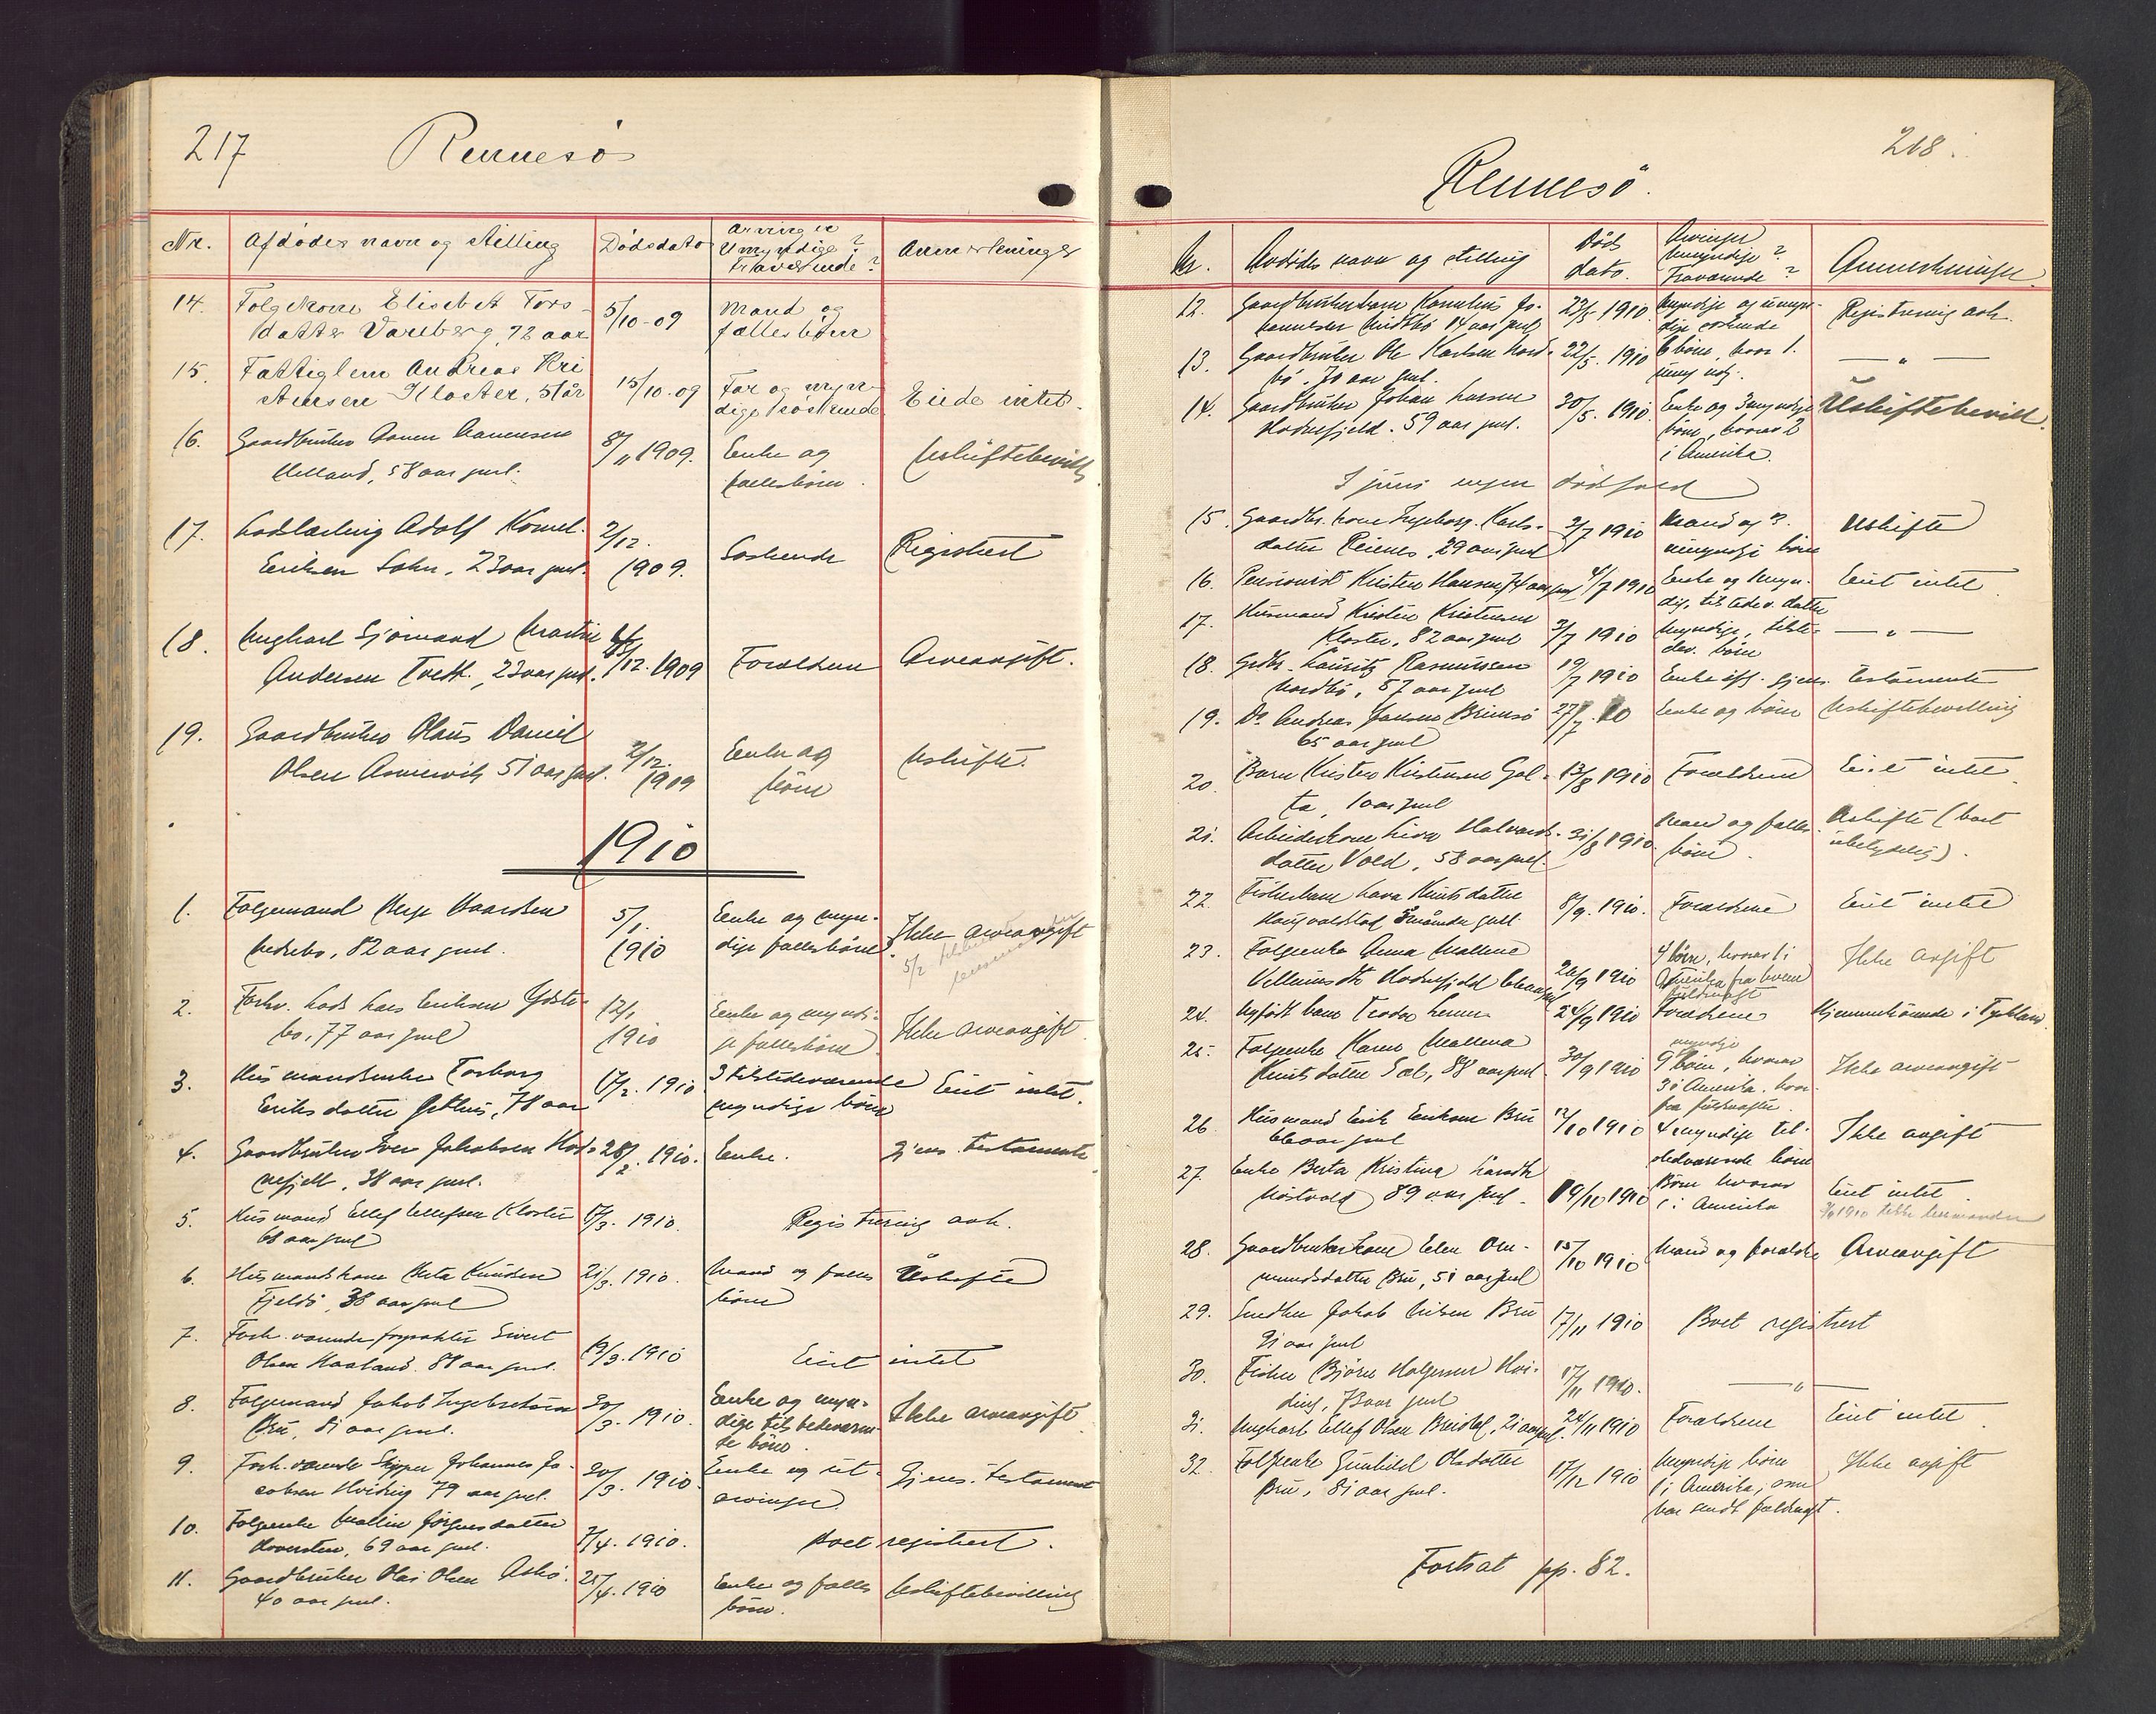 217
Rennesø
Nr.
Afdødes navn og stilling
Dødsdato
Arvinger
Umyndige?
Fraværende?
Anmerkninger
14.
Folgekone Elisabet Tors-
datter Vareberg, 72 aar
5/10-09
Mand og
fællesbørn
15.
Fattiglem Andreas Kri
stensen Kloster, 51 år
15/10-09
Far og myn-
dige søskende
Eiede intet.
16.
Gaardbruker
Helland, 58 aar gml.
8/11 1909.
Enke og
fællesbørn.
Uskiftebevill
17.
Adolf Kornel.
Eriksen Sokn, 23 aar gml.
2/12.
1909.
Søskende
Registrert
18.
Ungkarl Sjømand Martin
Andersen Tveit., 23 aar gml.
/12. 1909
Forældrene
Arveavgift.
19.
Gaardbruker Olaus Daniel
Olsen Asmervik 51 aar gml.
2/12.
1909
Enke og
børn
Uskifte.
1910
1.
Folgemand Aage Baardsen
Vedrebø, 82 aar gml.
5/1.
1910
Enke og myn-
dige fællesbørn.
Ikke arveavgift
5/2
2.
Forhv. Lods Lars Eriksen Ydste-
bø, 77 aar gml
12/1
1910
Enke og myndi-
ge fællesbørn
Ikke arveavgift
3.
Husmandsenke Torborg
Eriksdatter 78 aar
17/2. 1910
3 tilstedeværende
myndige børn
Eiet intet.
4.
Gaardbruker Iver Jakobsen Hod-
nefjell, 38 aar gml.
28/2. 1910.
Enke.
gjens. testamente
5.
Husmand Ellef Ellefsen Kloster
68 aar gml
17/3. 1910.
Registrering avh.
6.
Husmandskone Berta Knudsen
Fjeldø, 38 aar gml
21/3. 1910.
Mand og fælles
børn
Uskifte
7.
Forh. værende forpakter Sivert
Olsen Haaland. 84 aar gml.
19/3. 1910
Eiet intet
8.
Folgemand Jakob Ingebretsen
Bru, 81 aar gml.
30/3. 1910.
Enke og myn-
dige tilstedeværen-
de børn.
Ikke arveavgift
9.
Forh. værende Skipper Johannes Ja-
cobsen Hviding 79 aar gml.
30/3. 1910
Enke og ut-
arvinger
Gjens. testament
10.
Folgeenke Malin Jørgensdatter
69 aar gml.
7/4. 1910.
Boet registrert.
11.
Gaardbruker Olai Olsen Askø.
40 aar gml.
25/4. 1910
Enke og fælles
børn.
Uskiftebevilling
218.
Rennesö.
Nr.
Avdødes navn og stilling
Døds
dato.
Arvinger
Umyndige?
Fraværende?
Anmerkninger
12.
Gaardbrukerbarn Kornelius Jo-
hannesen 14 aar gml
23/5 1910.
Myndige og umyn-
dige søskende
Registrering avh.
13.
Gaardbruker Ole Karlsen Nord-
bø. 70 aar gml.
22/5. 1910
6 børn, hvor 1.
umyndg.
— " —
14.
Gaardbruker Johan Larsen
Hodnefjeld. 59 aar gml.
30/5. 1910.
Enke og 3 myndige
børn, hvorav 2
i Amerika.
Uskiftebevill.
I juni ingen dødsfald
15.
Gaardbr. kone Ingeborg Karls-
datter Reienes, 29 aar gml
2/7 1910
Mand og 3
umyndige børn
Uskifte
16.
Pensionist Kristen Hansen, 74 aar gml
4/7 1910
Enke og 1 myn-
dig, tilstedev. datter
Eiet intet
17.
Husmand Kristen Kristensen
Kloster, 82 aar gml
3/7 1910
Myndige, tilste-
dev. børn
— " —
18.
Grdbr. Lauritz Rasmussen
Nordbø, 57 aar gml
19/7 1910
Enke iflg. gjens. testamente
19.
Do Andreas Jansen Brimsø
65 aar gml
27/7. 10
Enke og børn
Uskiftebevilling
20.
Barn Kristen Kristensen Gal-
ta, 1 aar gml
13/8 1910
Forældrene
Eiet intet
21.
Arbeiderkone Liva Halvards-
datter Vold, 58 aar gml.
31/8 1910.
Mand og fælles
børn.
Uskifte (boet
ubetydelig).
22.
Fiskerbarn Lava Knutsdatter
3 måneder gml
8/9. 1910.
Forældrene
Eiet intet
23.
Folgeenke Anna Malene
Hodnefjeld
26/9 1910
4 børn, hvorav 1 i
Amerika fra hvem
fuldmagt
Ikke avgift
24.
Nyfødt barn
24/9 1910
Forældrene
Hjemmehørende i Tyskland.
25.
Folgeenke Karen Mallena
Knutsdatter Sæl, 88 aar gml.
30/9 1910
myndige
9 børn, hvorav
3 i Amerika. hvor-
fra fuldmagter.
Ikke arveavgift
26.
Husmand Erik Eriksen Bru
66 aar gml
12/10 1910
4 myndige til-
stedværende børn
Ikke avgift
27.
Enke Berta Kristina
89 aar gml.
19/10 1910
Børn hvorav
1 i Amerika
Eiet intet.
28.
Gaardbrukerkone Elen Om-
mundsdatter Bru, 51 aar gml
15/10 1910
Mand og forældre
Arveavgift
29.
Jakob Nilsen Bru
91 aar gml
17/11 1910
Boet registrert
30.
Fisker Bjørn Holgersen Hvi-
ding, 73 aar gml
17/11 1910.
— " —
31.
Ungkarl Ellef Olsen Breidal, 21 aar gml.
24/11 1910
Forældrene
Eiet intet.
32.
Folgeenke Gunhild Olsdatter
Bru, 81 aar gml.
17/12 1910
Myndige børn
1 i Amerika, som
har sendt fuldmagt.
Ikke avgift
Fortsat pp. 82.